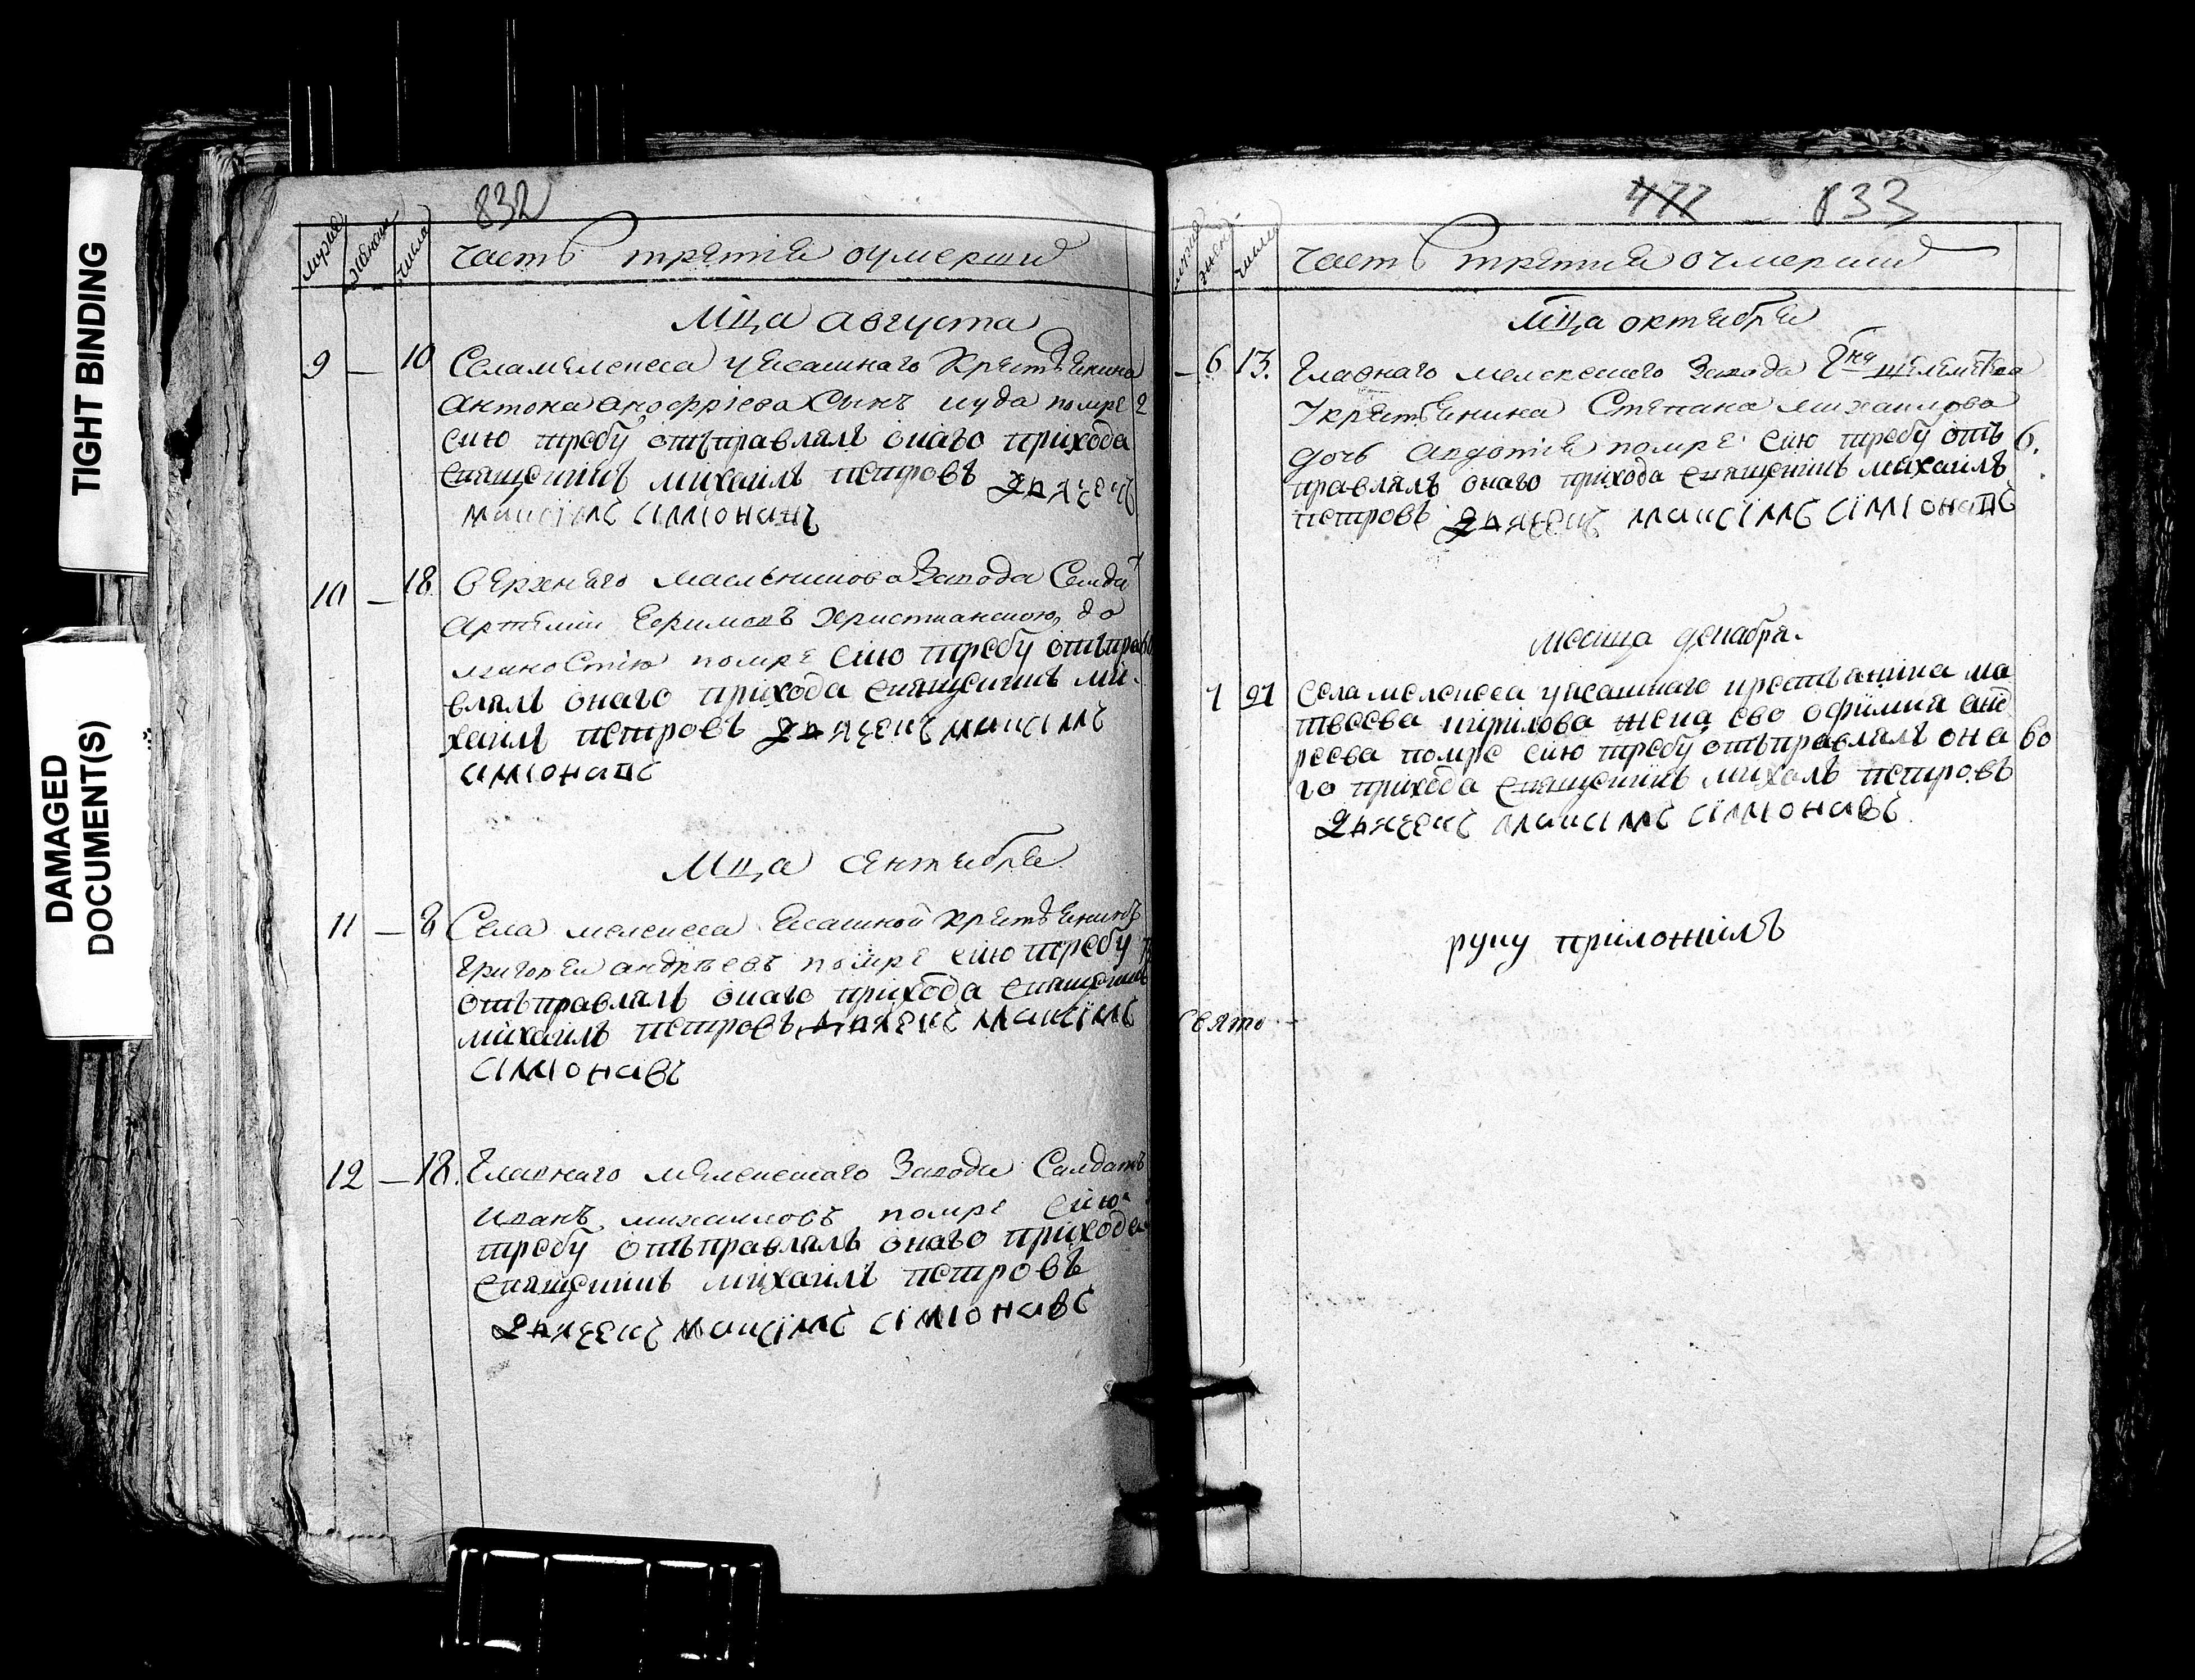 TIGHT BINDING
DAMAGED
DOCUMENT(S)
832
мужие
женои
числа
часть третія оумерши
Мца августа
9 — 10 Села мелекеса у ясашнаго крстьянина
Антона андфріева сынъ иуда помре 2
сию требу отъправлялъ онаго прихода
священникъ михаилъ петровъ
максимъ симіонавъ
10 — 18 верхняго мельникова завода Салда
Артемии Ефимовъ христианскою до
лжностию помре сию требу отъпра
влялъ онаго прихода священникъ ми
хаилъ петровъ максимъ
симіонавъ
Мца сентября
11 — 8 Села мелекеса ясашной крстьянинъ
григореи андреевъ помре сию требу
отъправлялъ онаго прихода священникъ
михаилъ петровъ максимъ
симіонавъ
12 — 18. Главнаго мелекескаго завода Салдатъ
иванъ михаиловъ помре сию
требу отъправлялъ онаго прихода
священникъ михаилъ петровъ
максимъ симіонавъ
477 833
числа
часть третия очмерши
Мца октября
— 6 13. Главнаго мелекескаго завода
крстьянина Степана михаилова
дочь авдотия помре сию требу отъ 6.
правлялъ онаго прихода священникъ михаилъ
петровъ максимъ симіонавъ
месяца декабря.
7 21 села мелекеса у ясашнаго крестьянина ма
твеева кирилова жена ево офимия анд
реева помре сию требу отъправлялъ она 60
го прихода священникъ михалъ петровъ
максимъ симіонавъ
руку приложилъ
свято